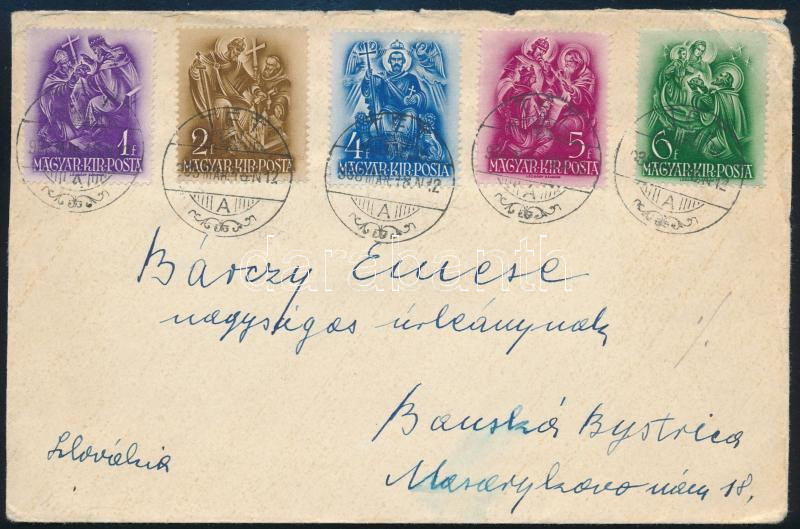 1f 2f 4f 5f 6f
MAGYAR·KIR·POSTA MAGYAR·KIR·POSTA MAGYAR·KIR·POSTA MAGYAR·KIR·POSTA MAGYAR·KIR·POSTA
A A A A A
darabanth
Bárczy Emese
nagyságos úrleánynak
Banská Bystrica
Szlovákia
Masarykovo nám 18.